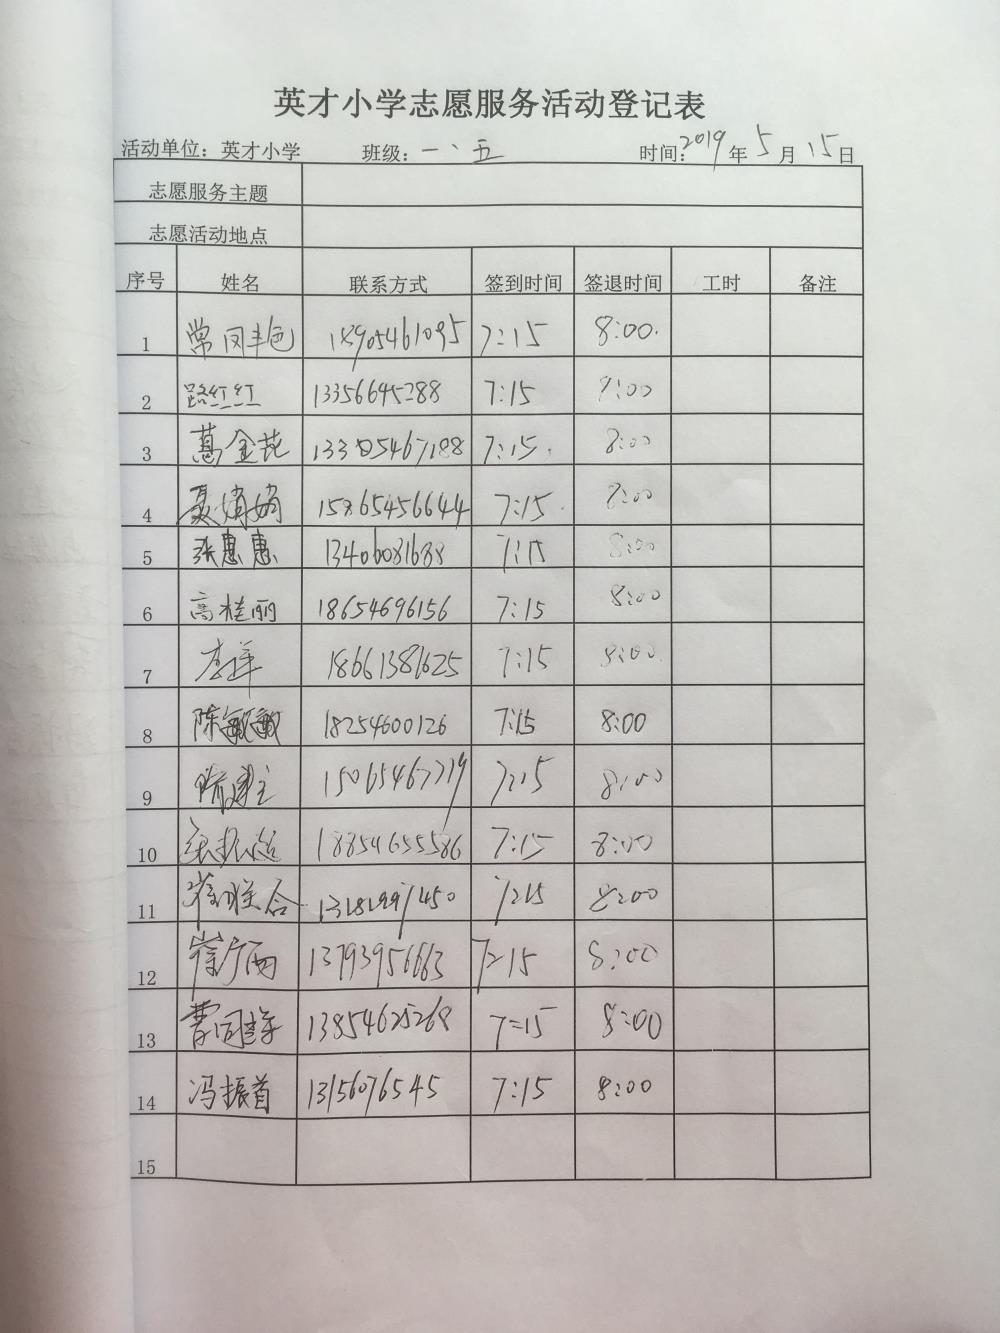 英才小学志愿服务活动登记表
活动单位：英才小学 班级：一、五 时间：2019年5月15日
志愿服务主题
志愿活动地点
序号 姓名 联系方式 签到时间 签退时间 工时 备注
1 18905461095 7:15 8:00.
2 路红红 13356645288 7:15 8:00
3 7:15. 8:00
4 15865456644 7:15. 8:00
5 张惠惠 13406081688 7:15 8:00
6 高桂丽 18654696156 7:15 8:00
7 18661381625 7:15 8:00.
8 陈敏敏 18254600126 7:15 8:00
9 15065467719 7:15 8:00
10 18854655586 7:15 8:00
11 7:15 8:00
12 崔广雨 13793956663 7:15 8:00
13 13854625268 7=15 8:00
14 冯振首 13156076545 7:15 8:00
15